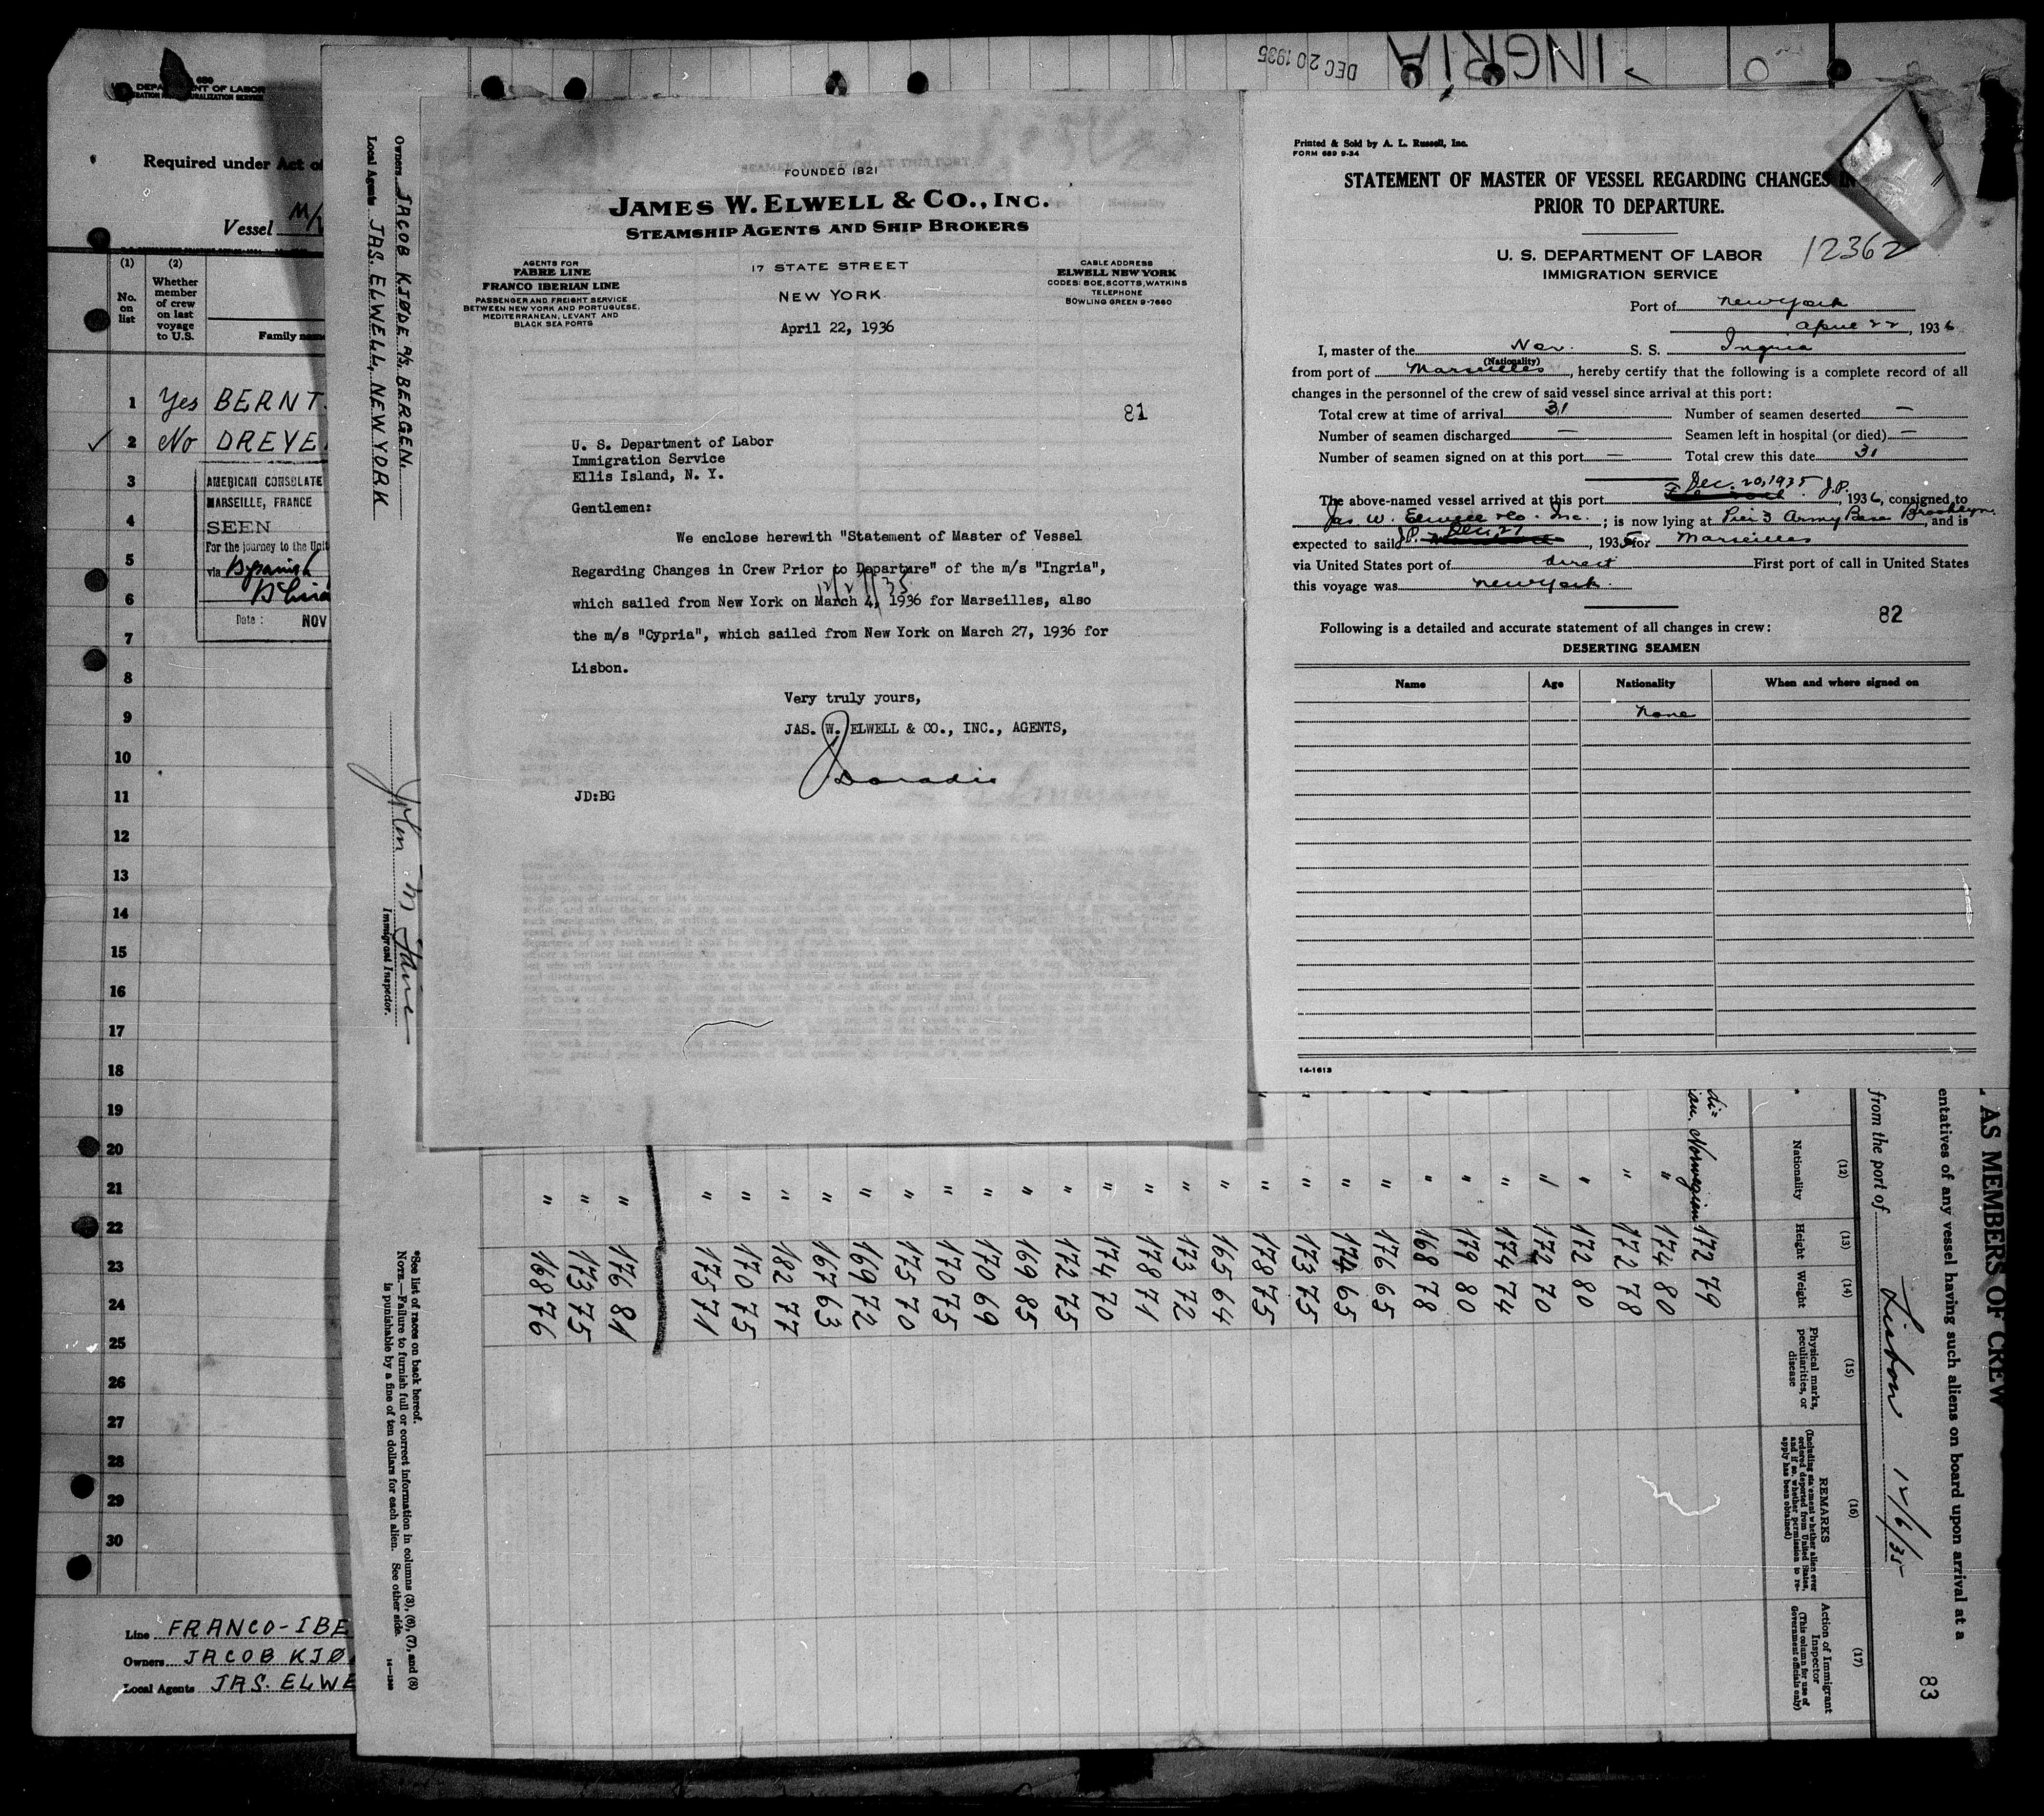 680
DEPARTMENT OF LABOR
Required under Act of
Vessel M/
(1)
(2)
No. on list
Whether member of crew on last voyage to U.S.
Family name
1 Yes BERNT
✓ 2 No DREYE
3
4
5
6
7
8
9
10
11
12
13
14
15
16
17
18
19
20
21
22
23
24
25
26
27
28
29
30
AMERICAN CONSULATE
MARSEILLE, FRANCE
SEEN
For the journey to the Unit
via
Date : NOV
Line FRANCO-IBE
Owners JACOB KJØ
Local Agents JAS. ELWE
Owners JACOB KJØDE A/S. BERGEN.
Local Agents JAS. ELWELL, NEW YORK
Immigrant Inspector.
*See list of races on back hereof.
NOTE.—Failure to furnish full or correct information in columns (3), (6), (7), and (8)
is punishable by a fine of ten dollars for each alien. See other side.
INGRIA
DEC 20 1935
FOUNDED 1821
JAMES W. ELWELL & CO., INC.
STEAMSHIP AGENTS AND SHIP BROKERS
AGENTS FOR
FABRE LINE
FRANCO IBERIAN LINE
PASSENGER AND FREIGHT SERVICE
BETWEEN NEW YORK AND PORTUGUESE,
MEDITERRANEAN, LEVANT AND
BLACK SEA PORTS
17 STATE STREET
NEW YORK
CABLE ADDRESS
ELWELL NEW YORK
CODES: BOE, SCOTTS, WATKINS
TELEPHONE
BOWLING GREEN 9-7660
April 22, 1936
81
U. S. Department of Labor
Immigration Service
Ellis Island, N. Y.
Gentlemen:
We enclose herewith "Statement of Master of Vessel
Regarding Changes in Crew Prior to Departure" of the m/s "Ingria",
12/27/35
which sailed from New York on March 4, 1936 for Marseilles, also
the m/s "Cypria", which sailed from New York on March 27, 1936 for
Lisbon.
Very truly yours,
JAS. W. ELWELL & CO., INC., AGENTS,
JD:BG
Printed & Sold by A. L. Russell, Inc.
FORM 689 9-34
STATEMENT OF MASTER OF VESSEL REGARDING CHANGES IN
PRIOR TO DEPARTURE.
12362
U. S. DEPARTMENT OF LABOR
IMMIGRATION SERVICE
Port of New York
April 22, 1936
I, master of the Nor. S. S. Ingria
(Nationality)
from port of Marseilles, hereby certify that the following is a complete record of all
changes in the personnel of the crew of said vessel since arrival at this port:
Total crew at time of arrival 31 Number of seamen deserted —
Number of seamen discharged — Seamen left in hospital (or died) —
Number of seamen signed on at this port — Total crew this date 31
Dec. 20, 1935 J.P.
The above-named vessel arrived at this port , 1936, consigned to
Jas W. Elwell & Co. Inc. ; is now lying at Pier 3 Army Base Brooklyn, and is
expected to sail J.P. Dec. 27, 1935 for Marseilles
via United States port of direct First port of call in United States
this voyage was New York.
82
Following is a detailed and accurate statement of all changes in crew:
DESERTING SEAMEN
Name Age Nationality When and where signed on
None
14-1613
AS MEMBERS OF CREW
entatives of any vessel having such aliens on board upon arrival at a
from the port of Lisbon 12/6/35
83
(12) Nationality
(13) Height
(14) Weight
(15) Physical marks, peculiarities, or disease
(16) REMARKS
(Including statement whether alien ever ordered deported from United States, and if so, whether permission to reapply has been obtained)
(17) Action of Immigrant Inspector
(This column for use of Government officials only)
Norwegian 172 79
" 174 80
" 172 78
" 172 80
" 172 70
" 174 74
" 179 80
" 168 78
" 176 65
" 174 65
" 173 75
" 178 75
" 165 64
" 173 72
" 178 71
" 174 70
" 172 75
" 169 85
" 170 69
" 170 75
" 175 70
" 169 72
" 167 63
" 182 77
" 170 75
" 175 71
" 176 81
" 173 75
" 168 76